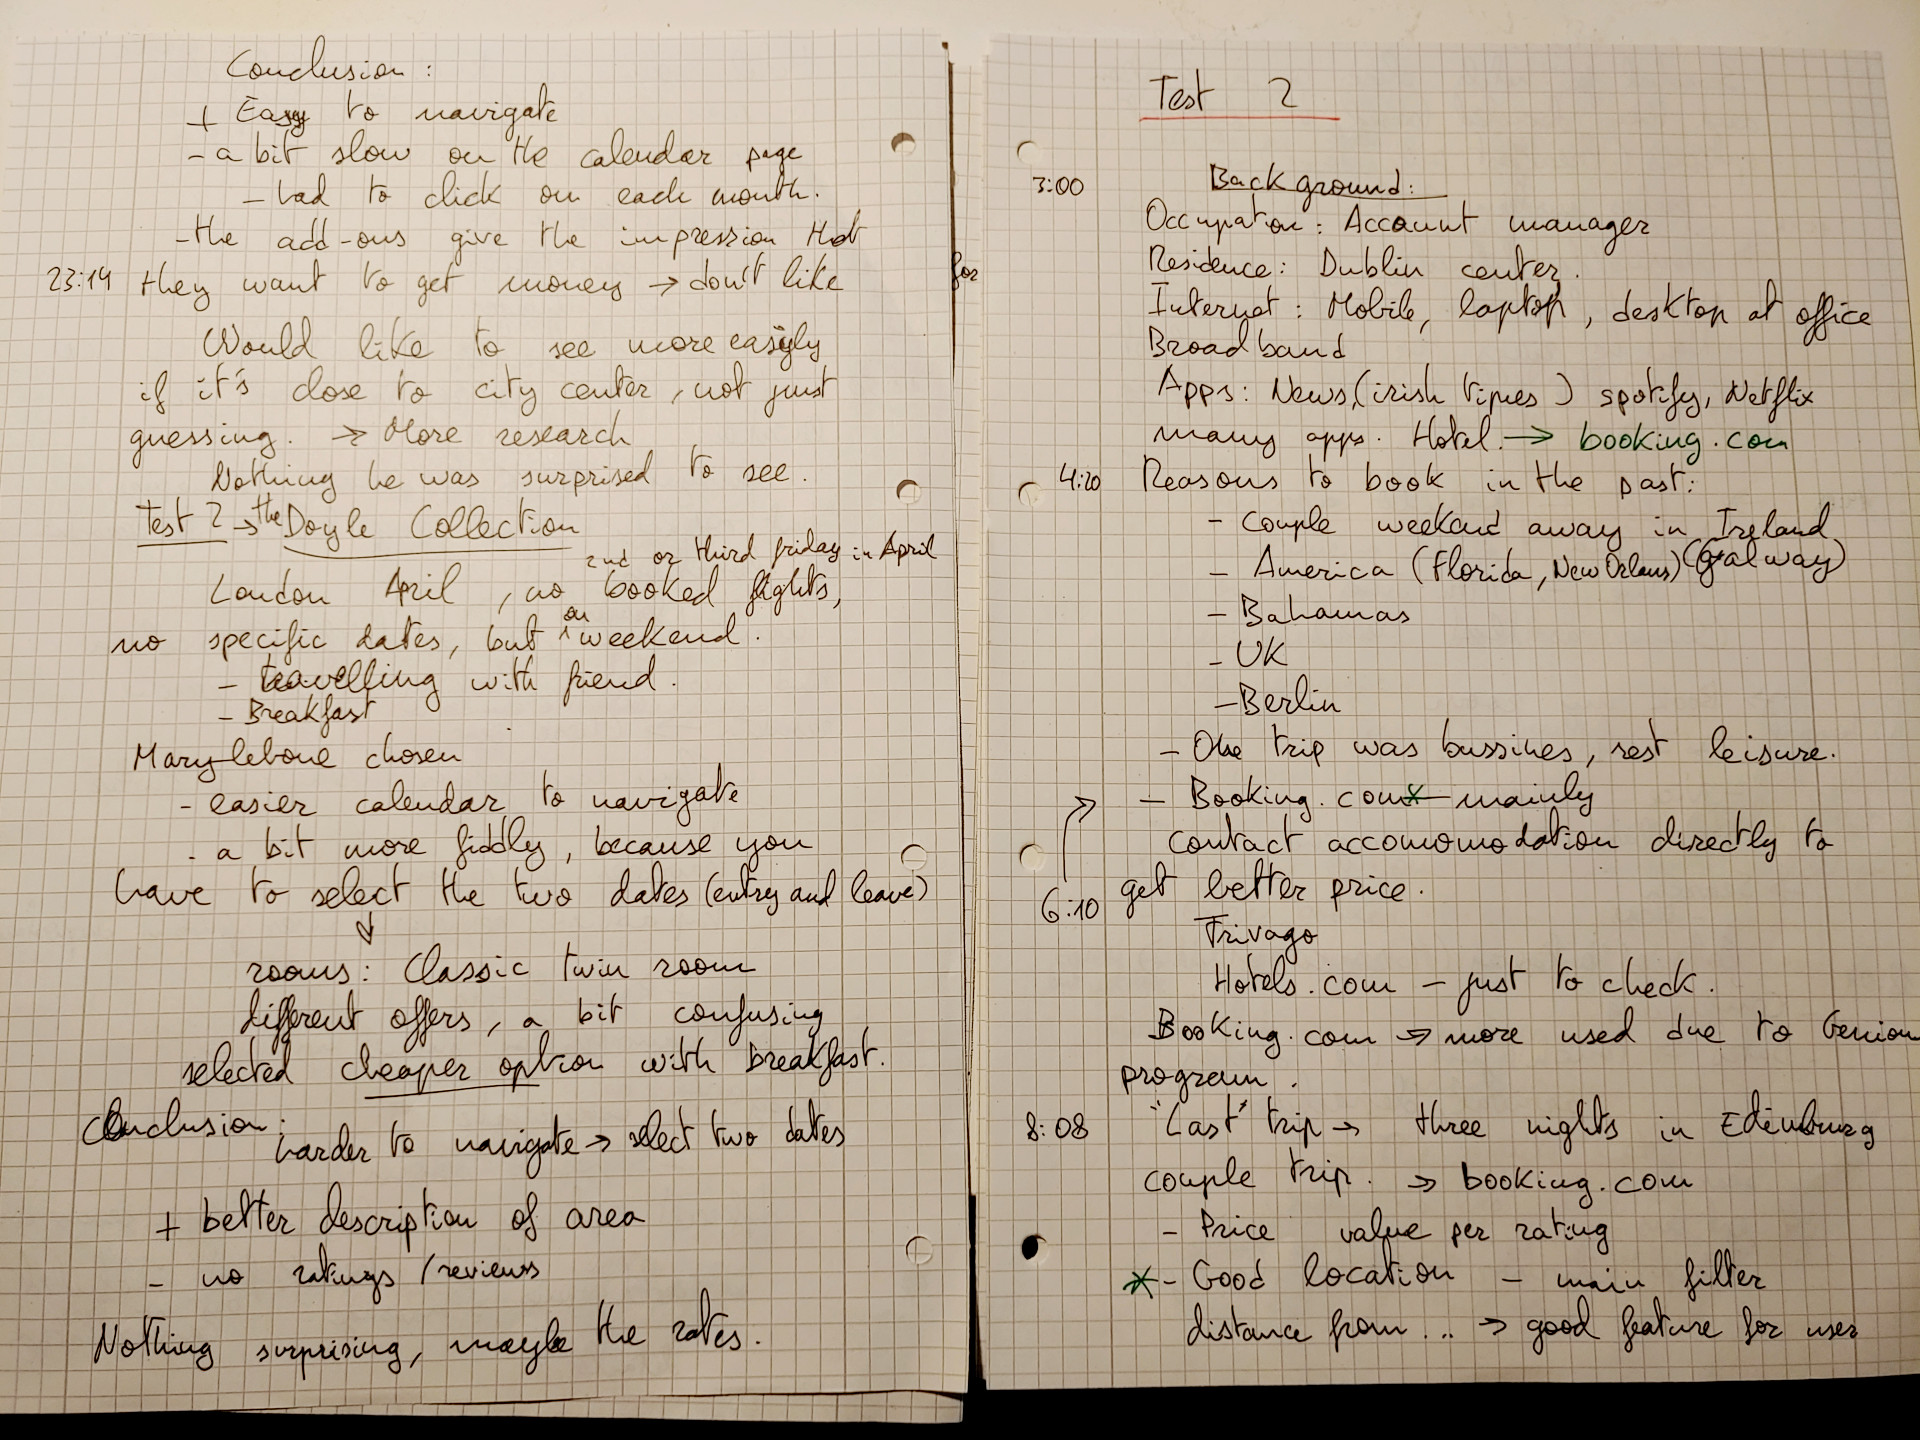 Conclusion :
+ Easy to navigate
- a bit slow on the calendar page
- had to click on each month.
- the add-ons give the impression that
23:19 they want to get money → don't like
Would like to see more easily
if it's close to city center, not just
guessing. → More research
Nothing he was surprised to see.
Test 2 → the Doyle Collection
2nd or third friday in April
London April, no booked flights,
no specific dates, but on weekend.
- travelling with friend.
- Breakfast
Marylebone chosen
- easier calendar to navigate
- a bit more fiddly, because you
have to select the two dates (entry and leave)
↓
rooms: Classic twin room
different offers, a bit confusing
selected cheaper option with breakfast.
Conclusion:
harder to navigate → select two dates
+ better description of area
- no ratings / reviews
Nothing surprising, maybe the rates.
for
Test 2
3:00 Background:
Occupation: Account manager
Residence: Dublin center.
Internet: Mobile, laptop, desktop at office
Broadband
Apps: News, (irish times) spotify, Netflix
many apps. Hotel. → booking.com
4:20 Reasons to book in the past:
- Couple weekend away in Ireland
(Galway)
- America (Florida, New Orlans)
- Bahamas
- UK
- Berlin
- One trip was bussines, rest leisure.
- Booking.com - mainly
contact accomomodation directly to
6:10 get better price.
Trivago
Hotels.com - just to check.
Booking.com → more used due to Genious
program.
8:08 "Last" trip → three nights in Edinburg
couple trip. → booking.com
- Price value per rating
* - Good location - main filter
distance from ... → good feature for user